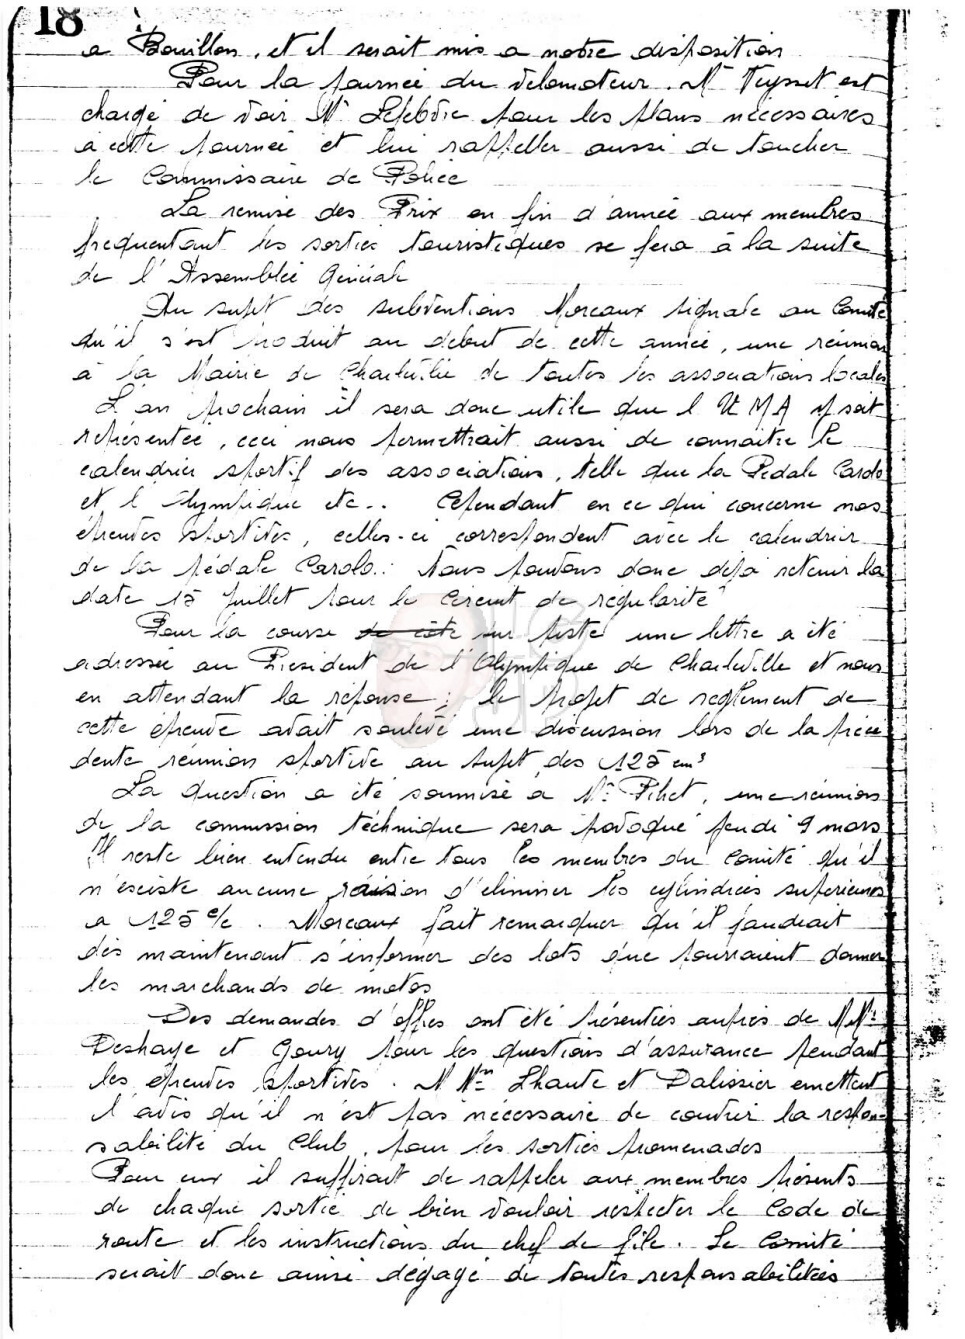 18
a Bouillon, et il serait mis a notre disposition
Pour la journée du Vélomoteur. Mr Veysset est
chargé de voir Mr Lefebvre pour les plans nécessaires
a cette journée et lui rappeller aussi de toucher
le Commissaire de Police
La remise des Prix en fin d'année aux membres
frequentant les sorties touristiques se fera à la suite
de l'Assemblée Générale
Au sujet des subventions Moreaux signale au Comité
qu'il s'est produit au debut de cette année, une réunion
à la Mairie de Charleville de toutes les associations locales
L'an prochain il sera donc utile que l'UMA y soit
représentée, ceci nous permettrait aussi de connaitre le
calendrier sportif des associations, telle que la Pédale Carolo
et l'Olympique etc.. Cependant en ce qui concerne nos
épreuves sportives, celles-ci correspondent avec le calendrier
de la pédale Carolo. Nous pouvons donc déjà retenir la
date 15 Juillet pour le Circuit de regularité
Pour la course de côte sur piste une lettre a été
adressée au Président de l'Olympique de Charleville et nous
en attendant la réponse; le projet de reglement de
cette épreuve avait soulevé une discussion lors de la précé
dente réunion sportive au sujet des 125 cm³
La question a été soumise a Mr Pihet, une réunion
de la commission téchnique sera provoqué jeudi 9 mars
Il reste bien entendu entre tous les membres du Comité qu'il
n'esciste aucune raison d'eliminer les cylindrées superieures
a 125 c/c. Moreaux fait remarquer qu'il faudrait
dès maintenant s'informer des lots que pourraient donner
les marchands de motos
Des demandes d'offres ont été présentées auprès de MMrs
Deshaye et Goury pour les questions d'assurance pendant
les épreuves sportives. MMrs Lhaute et Dalissier emettent
l'avis qu'il n'est pas nécessaire de couvrir la respon-
sabilité du Club, pour les sorties promenades
Pour eux il suffirait de rappeler aux membres présents
de chaque sortie de bien vouloir respecter le Code de
route et les instructions du chef de file. Le Comité
serait donc ainsi dégagé de toutes responsabilitées